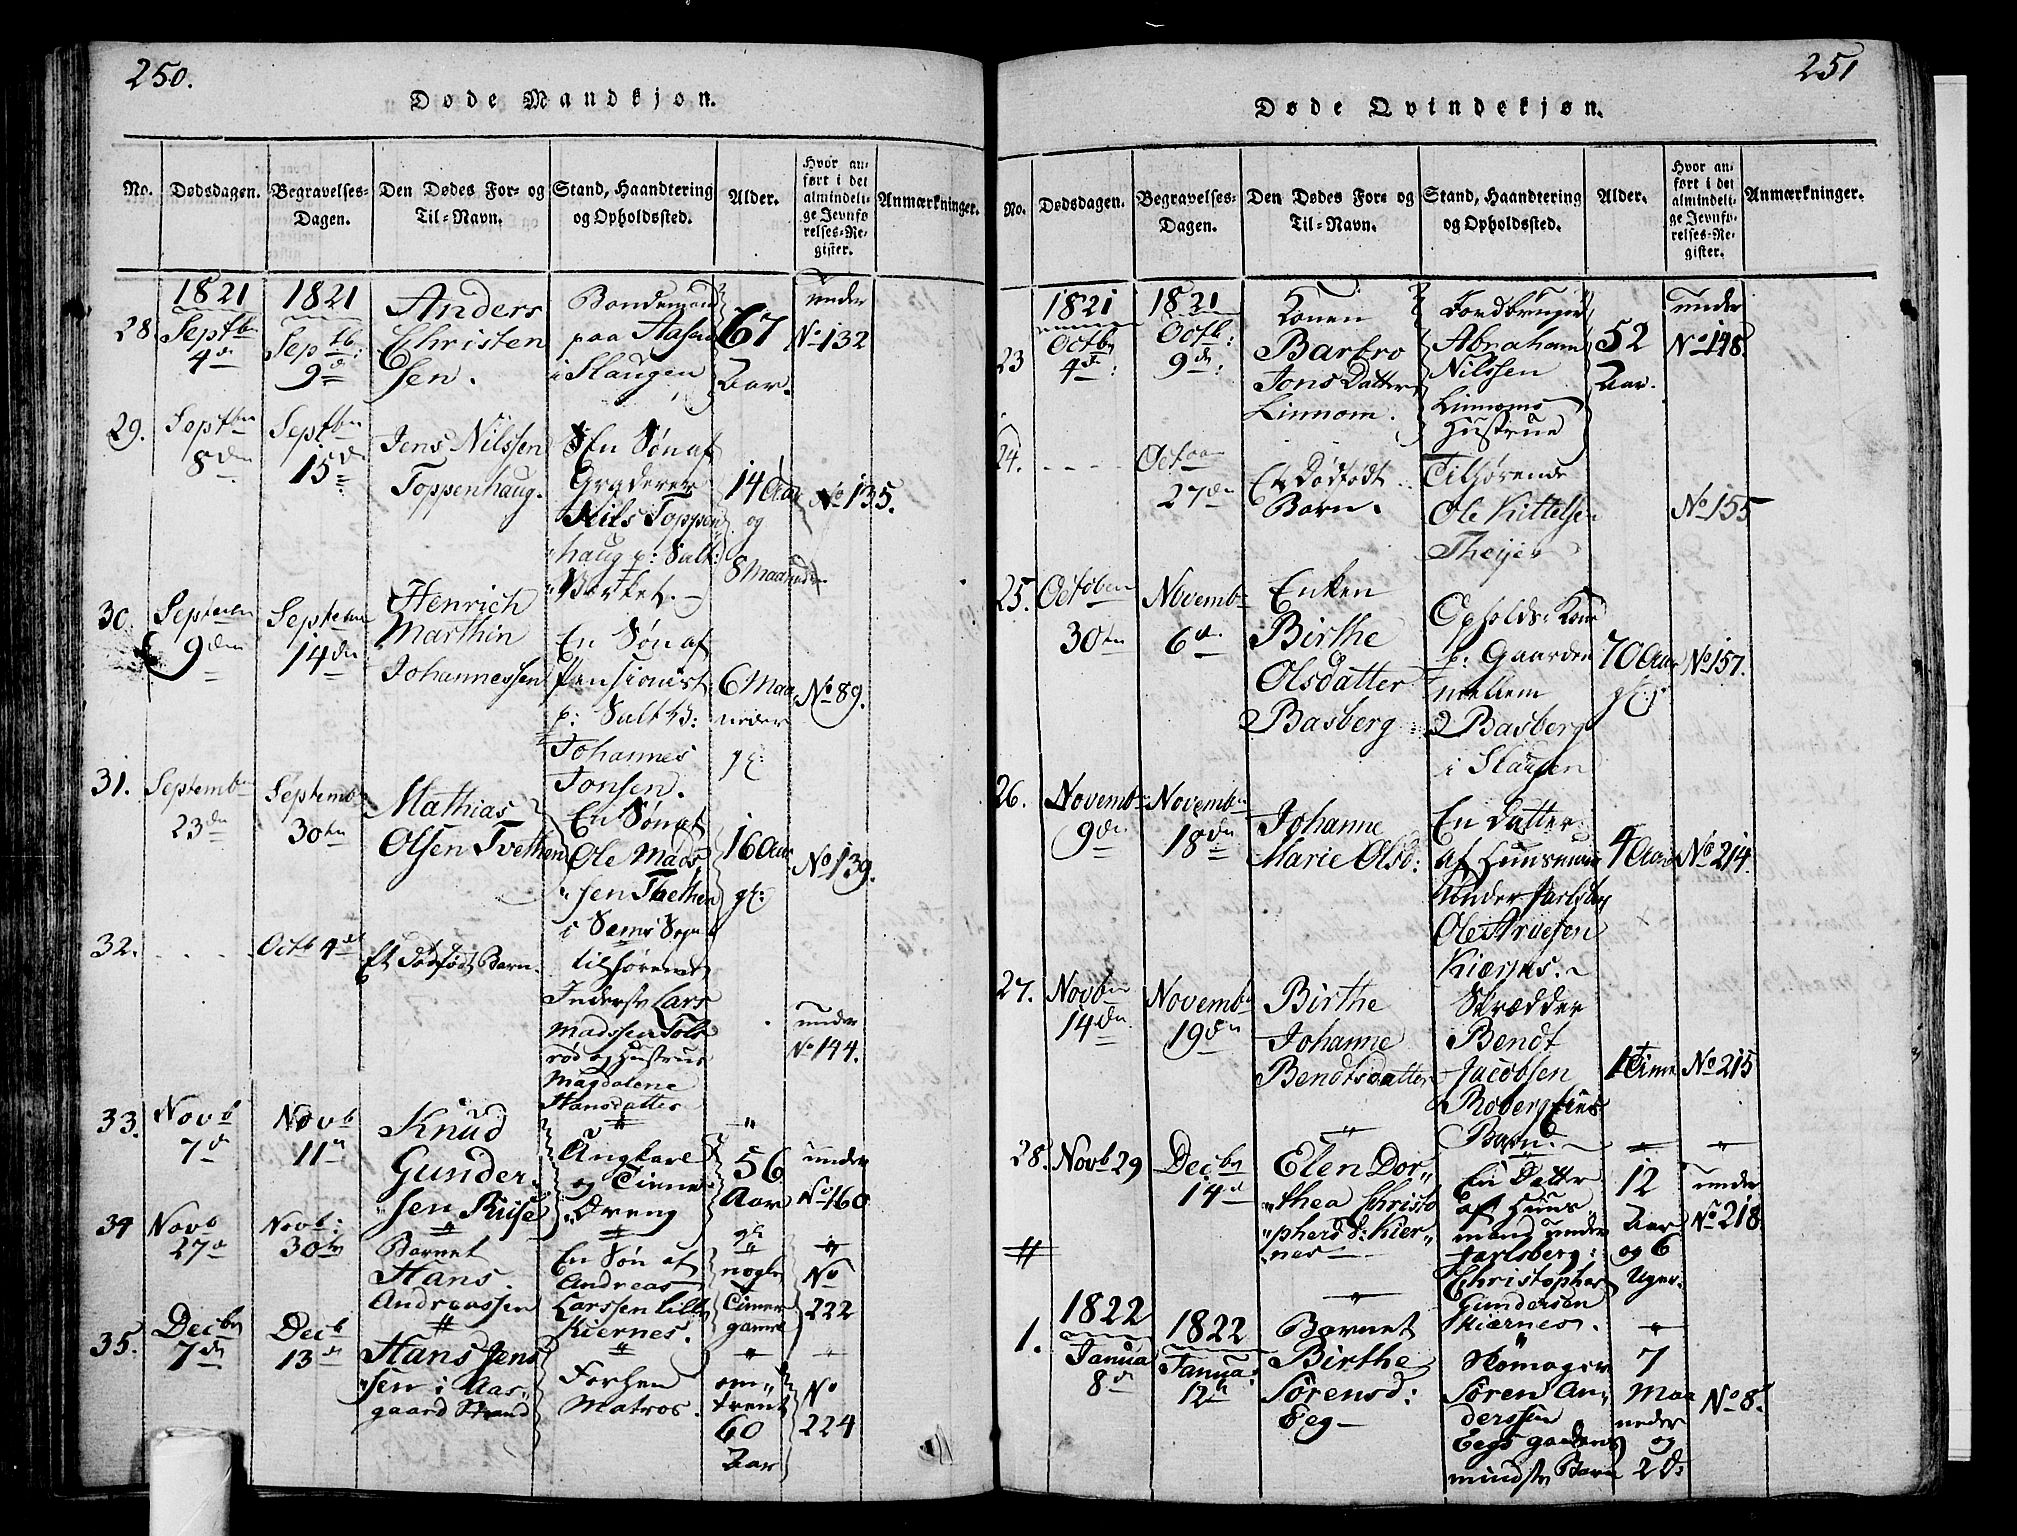 250.
Døde Mandkjøn.
No.
Dødsdagen.
Begravelses-
Dagen.
Den Dødes For- og
Til-Navn.
Stand, Haandtering
og Opholdssted.
Alder.
Hvor an-
ført i det
almindeli-
ge Jevnfø-
relses-Re-
gister.
Anmærkninger.
28
1821
Septbr
4de
1821
Septb:
9de
Anders
Christen
sen.
Bondemand
paa Aasen
i Slaugen
67
Aar.
under
No 132
29.
Septbr
8de
Septbr
15de
Jens Nilssen
Toppenhaug.
En Søn af
Graderer
Nils Toppen
haug p: Salt:
Værket.
14 Aar
og
8 Maaneder
No 135.
30.
September
9de
September
14de
Henrich
Marthin
Johannessen
En Søn af
Pensionist
p: Salt V:
Johannes
Jonsen.
6 Maa
neder
gl:
No 89.
31.
September
23de
September
30te
Mathias
Olsen Tvethen
En Søn af
Ole Mads
sen Tvethen
i Sems Sogn
16 Aar
gl:
No 139.
32.
Octb 4de
Et dødfødt Barn.
tilhørende
Inderste Lars
Madssen Tols
rød og Hustrue
Magdalene
Hansdatter
under
No 144.
33.
Novb
7de
Novb
11te
Knud
Gunder
sen Riise
Ungkarl
og Tienne
Dreng
56
Aar
gl
under
No 160
34
Novb
27de
Novb:
30te
Barnet
Hans
Andreassen
En Søn af
Andreas
Larssen Lille
Kiernes.
nogle
Timer
gamle
No
222
35.
Decbr
7de
Decb
13de
Hans Jens
sen i Aas
gaard Strand
Forhen
Matros.
om
trent
60
Aar
No
224
251
Døde Qvindekjøn.
No.
Dødsdagen.
Begravelses-
Dagen.
Den Dødes For- og
Til-Navn.
Stand, Haandtering
og Opholdssted.
Alder.
Hvor an-
ført i det
almindeli-
ge Jevnfø-
relses-Re-
gister.
Anmærkninger.
23
1821
Octbr
4de:
1821
Octb:
9de:
Konen
Barbro
Jons Datter
Linnom.
Abraham
Nilssen
Linnoms
Hustrue
52
Aar.
under
No 148.
24.
October
27de
Et Dødfødt
Barn.
Tilhørende
Ole Kittelsen
Theijer
No 155
25.
October
30te
November
6te
Enken
Birthe
Olsdatter
Basberg
Opholds: Kone
p: Gaarden
mellem
Basberg
i Slaugen
70 Aar
gl:
No 157.
26.
November
9de
November
18de
Johanne
Marie Olsd:
En Datter
af Huusmand
under Jarlsberg
Ole Arvesen
Kiærnes.
4 Aar
No 214.
27.
Novbr
14de
November
19de
Birthe
Johanne
Bendtsdatter
Skrædder
Bendt
Jacobsen
Roberg Eies
Barn.
1 Time
No 215
28.
Novb 29
Decbr
14de
Elen Dor
thea Christo
phersd: Kier
nes
En Datter
af Huus
mand under
Jarlsberg:
Christopher
Gundersen
Kiærnes.
12
Aar
og 6
Uger.
under
No 218.
1.
1822
Janua
8de
1822
Janua:
12te
Barnet
Birthe
Sørensd:
Eeg
Skomager
Søren An
derssen
Eegs gaardens
mindste Barn
7
Maa
neder
og
2 D:
No 8.